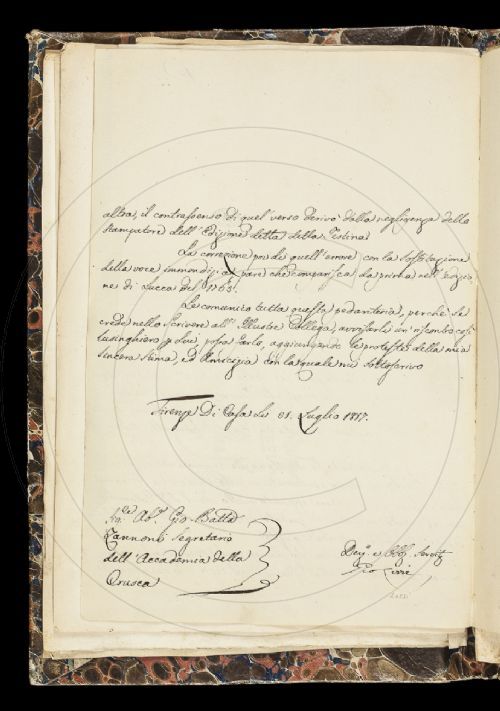 altra, il contrassenso di quel verso derivò dalla negligenza dello
stampatore dell'Edizione detta della Testina
La correzione poi di quell'errore con la sostituzione
della voce immondizia pare che comparisca la prima nell'edizio
ne di Lucca del
Le comunico tutta questa pedanteria, perchè se
crede nello scrivere all'Illustre Collega,
lusinghiero p lui, possa farlo, aggiungendo le proteste della mia
sincera stima, ed Amicizia con la quale mi sottoscrivo
Firenze Di Casa Li 31. Luglio 1817.
Sig.re Ab.e Gio Batta
Zannoni Segretario
dell'Accademia della
Crusca
Dev.o e Obb.
Gio